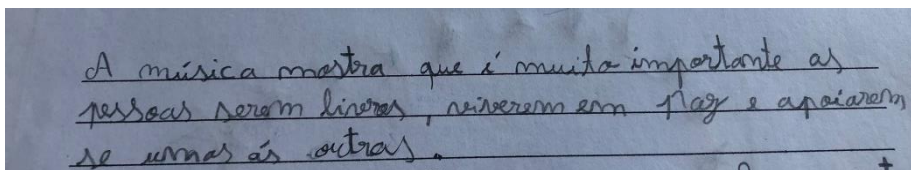 A música mostra que é muito importante as
pessoas serem livres, viverem em paz e apoiarem
se umas ás outras.